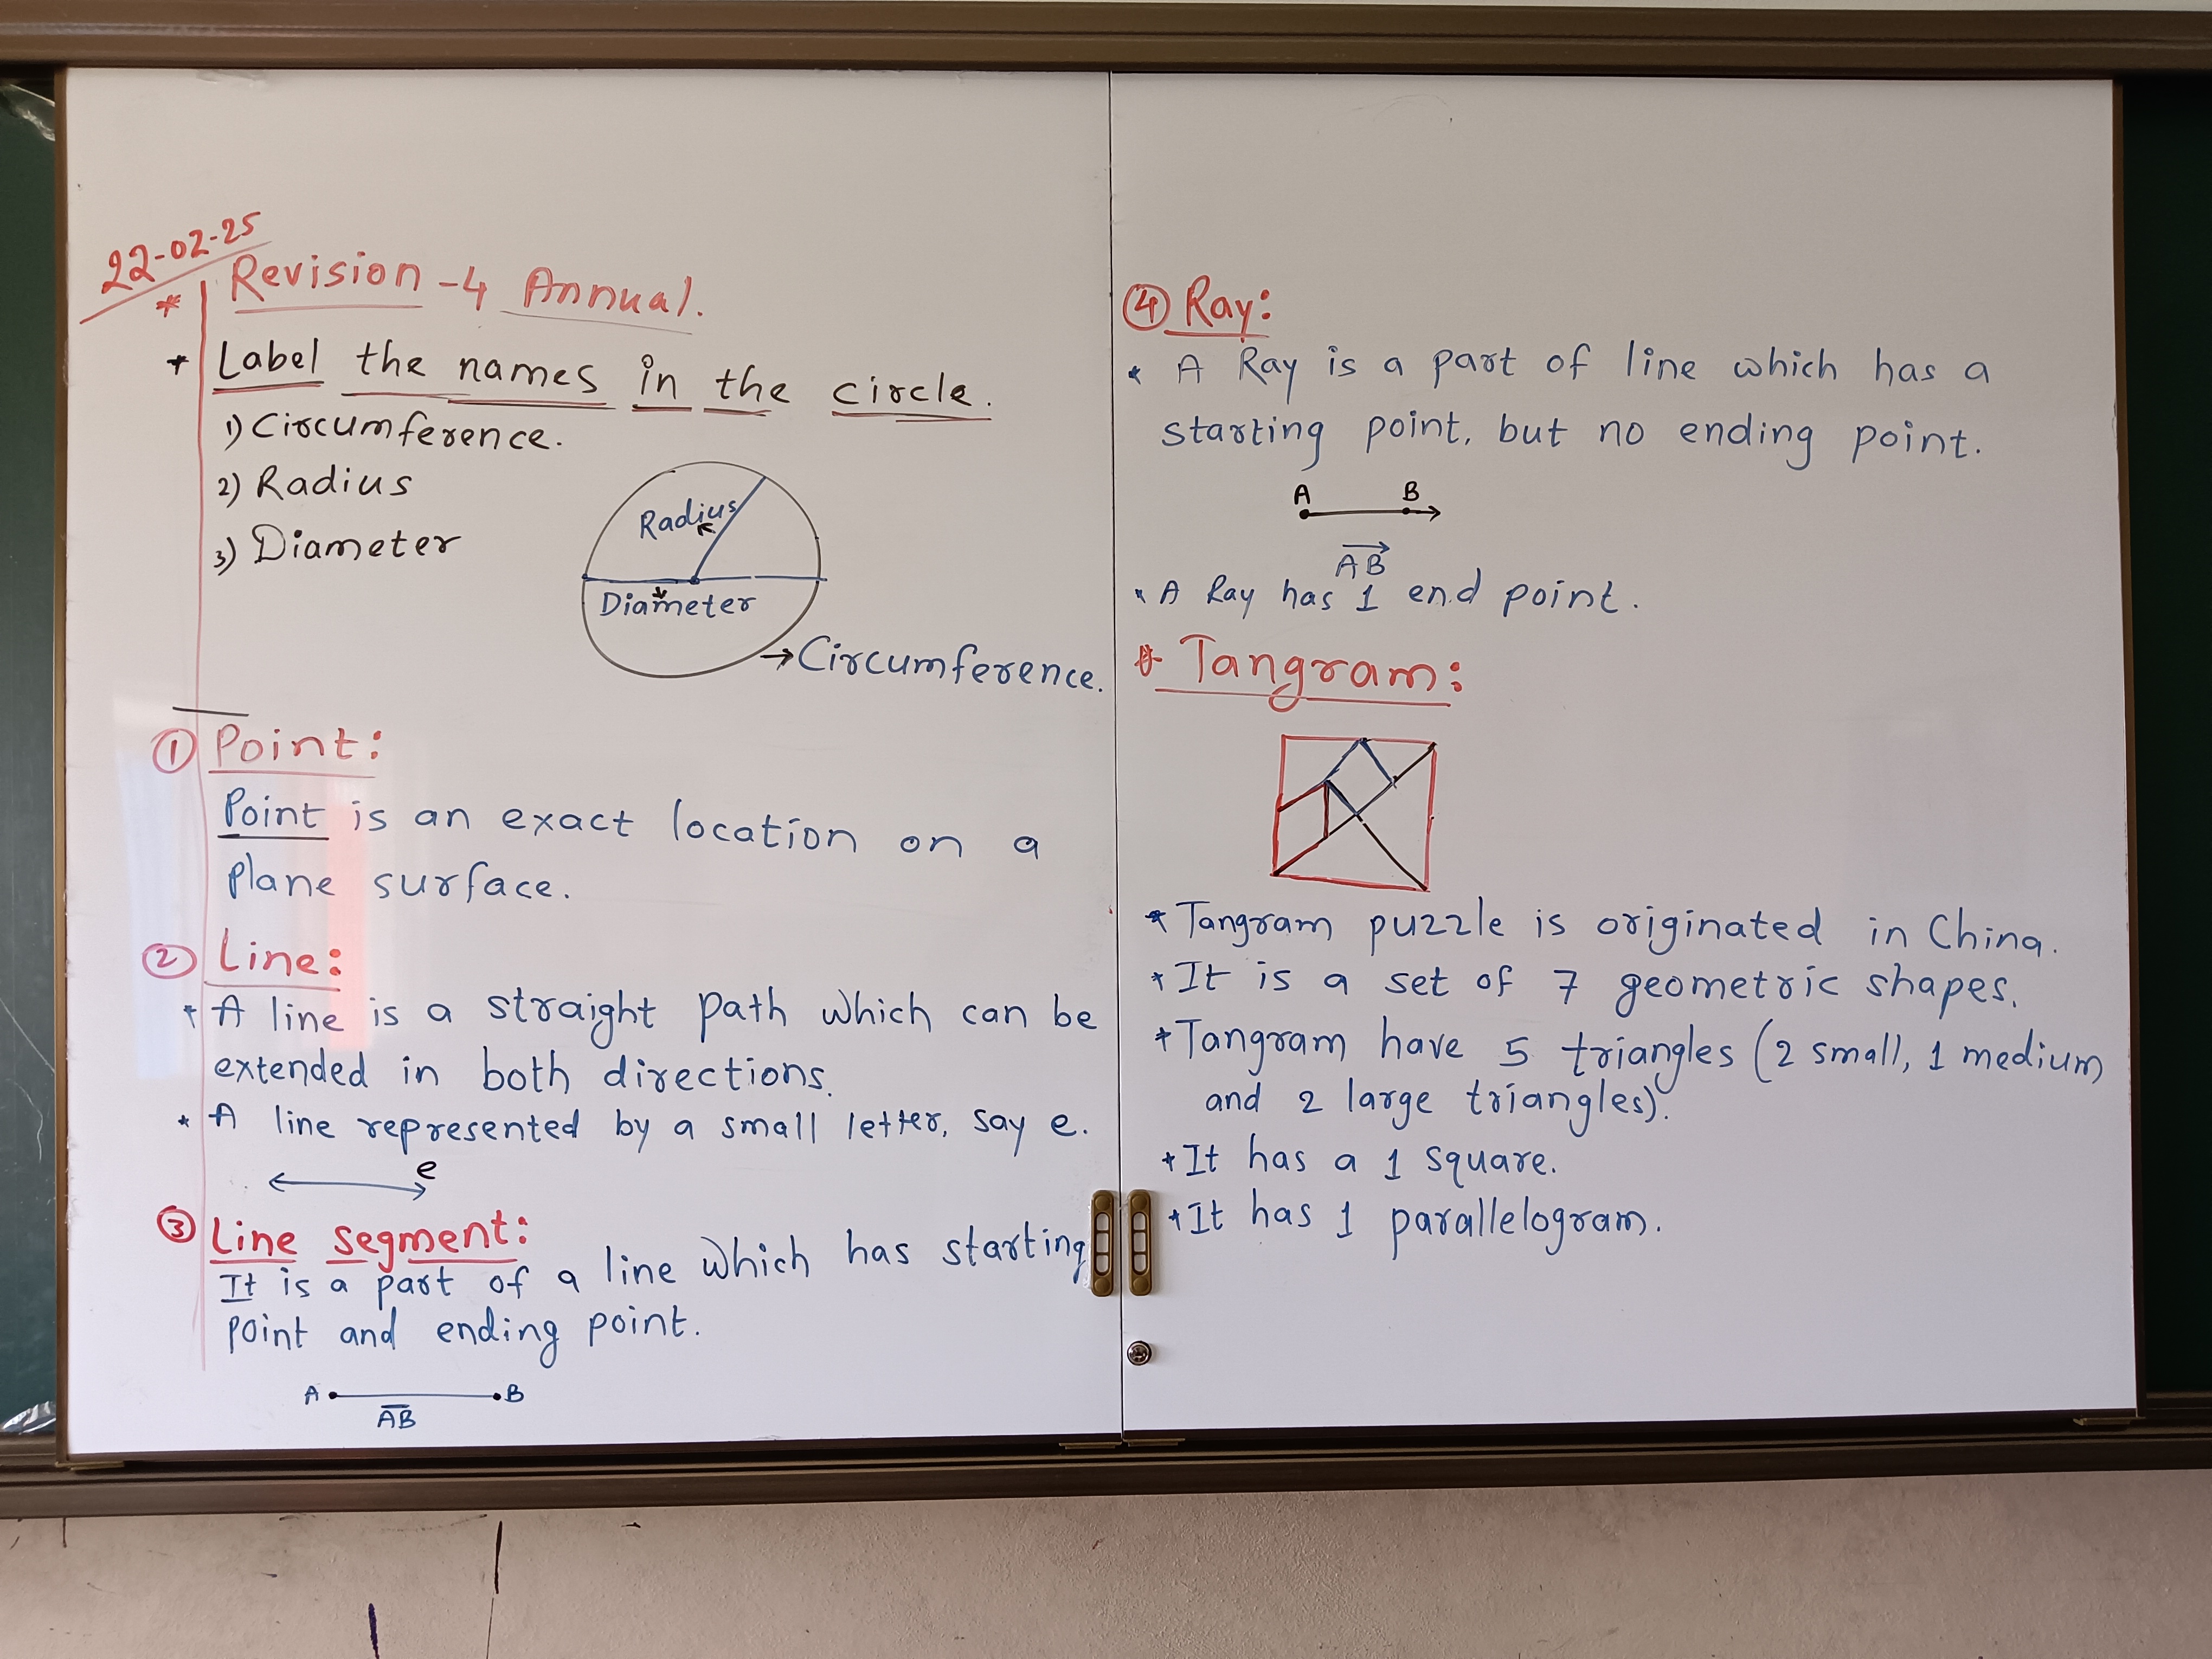 22-02-25
* Revision-4 Annual.
* Label the names in the circle.
1) Circumference.
2) Radius
3) Diameter
Radius
Diameter
→ Circumference.
① Point:
Point is an exact location on a
plane surface.
② Line:
* A line is a straight path which can be
extended in both directions.
* A line represented by a small letter, say e.
e
③ Line segment:
It is a part of a line which has starting
point and ending point.
A B
AB
④ Ray:
* A Ray is a part of line which has a
starting point, but no ending point.
A B
AB
* A Ray has 1 end point.
* Tangram:
* Tangram puzzle is originated in China.
* It is a set of 7 geometric shapes.
* Tangram have 5 triangles (2 small, 1 medium
and 2 large triangles).
* It has a 1 square.
* It has 1 parallelogram.